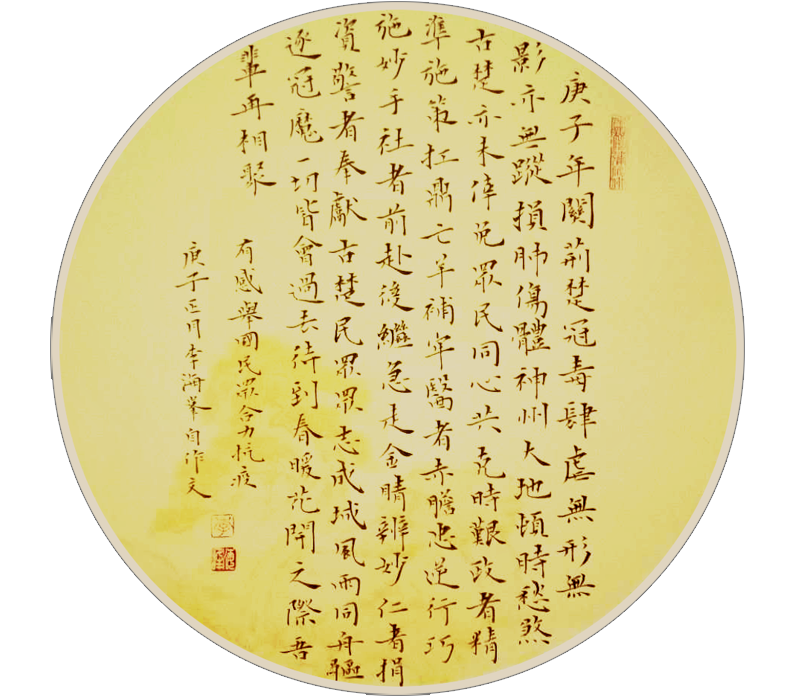 庚子年關荊楚冠毒肆虐無形無
影亦無蹤損肺傷體神州大地頓時愁煞
古楚亦未倖免眾民同心共克時艱政者精
準施策扛鼎亡羊補牢醫者赤膽忠逆行巧
施妙手社者前赴後繼急走金睛辨妙仁者捐
資警者奉獻古楚民眾眾志成城風雨同舟驅
逐冠魔一切皆會過去待到春暖花開之際吾
輩再相聚
有感舉國民眾合力抗疫
庚子正月李海峯自作文